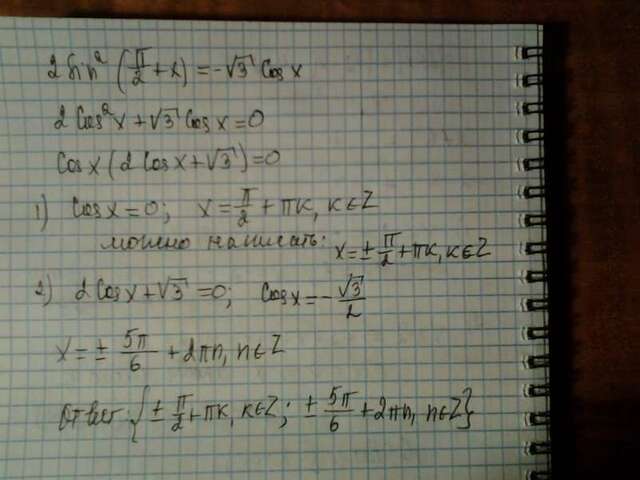 2 sin² (π/2 + x) = -√3 cos x
2 cos² x + √3 cos x = 0
cos x (2 cos x + √3) = 0
1) cos x = 0; x = π/2 + πk, k∈Z
можно написать: x = ± π/2 + πk, k∈Z
2) 2 cos x + √3 = 0; cos x = - √3/2
x = ± 5π/6 + 2πn, n∈Z
Ответ: {± π/2 + πk, k∈Z; ± 5π/6 + 2πn, n∈Z}